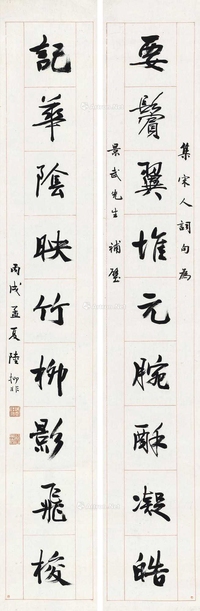 集宋人詞句為
要鬢翼堆元腕酥凝皓
景武先生補壁
記華陰映竹柳影飛梭
丙戌孟夏陸抑非